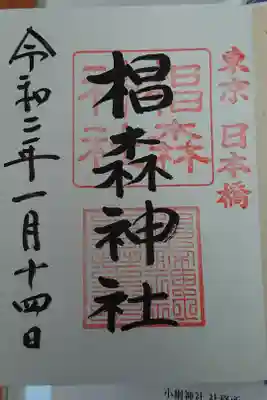 東京 日本橋
椙森神社
椙森
神社
令和二年一月十四日
小網神社 社務所